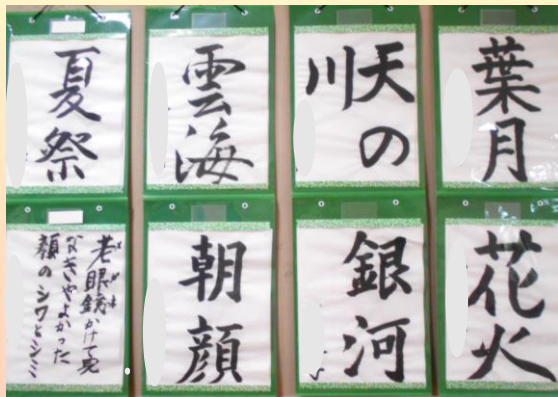 葉月
天の
川
雲海
夏祭
花火
銀河
朝顔
老眼鏡かけて見
なきゃよかった
顔のシワとシミ